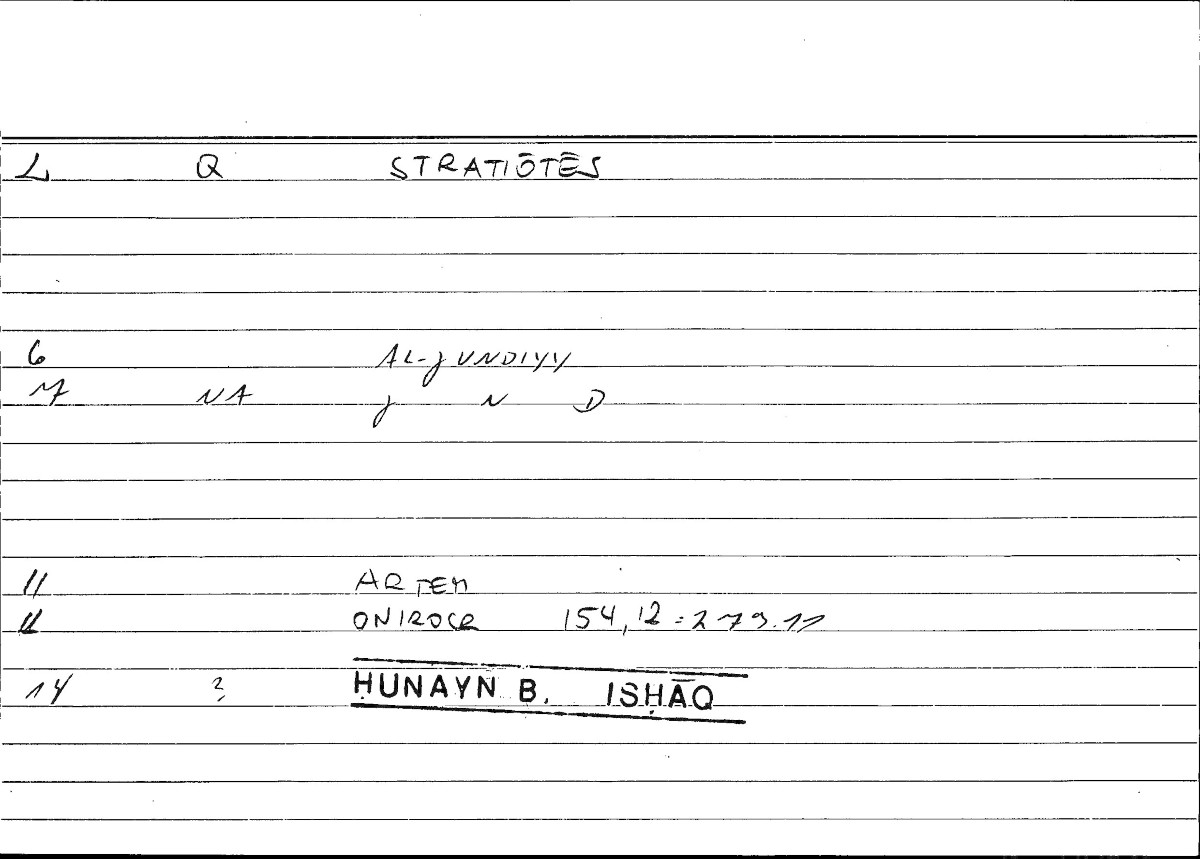 2 Q STRATIŌTĒS
6 AL-jUNDIYY
7 NA j N D
11 ARTEM
12 ONIROCR 154,12 = 279.11
14 ? ḤUNAYN B. ISḤĀQ